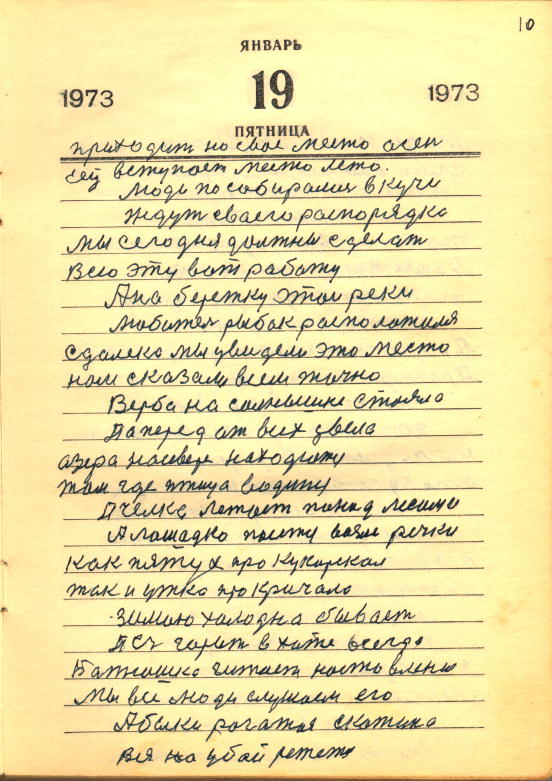 10
ЯНВАРЬ
1973 19 1973
ПЯТНИЦА
приходит на свае место осен
сец вступает место лето.
Люди по собирались в кучи
Ждут сваего распорядка
Мы сегодня должны сделат
Всю эту вот работу
А на бережку этой реки
Любител рыбак расположился
сдалека мы увидели это место
нам сказали всем точно
Верба на солнышке стояла
Паперед от всех цвела
азера насевере находяту
там где птица водиту
Пчелка летает понад лесами
А лошадка пасету возле речки
Как пятух про Кукарекал
так и утка про Кричала
Зимою халодна бывает
горит в хате всегда
Батюшка читает наставления
Мы все люди слушаем его
А быки рогатая скотина
Вся на убой